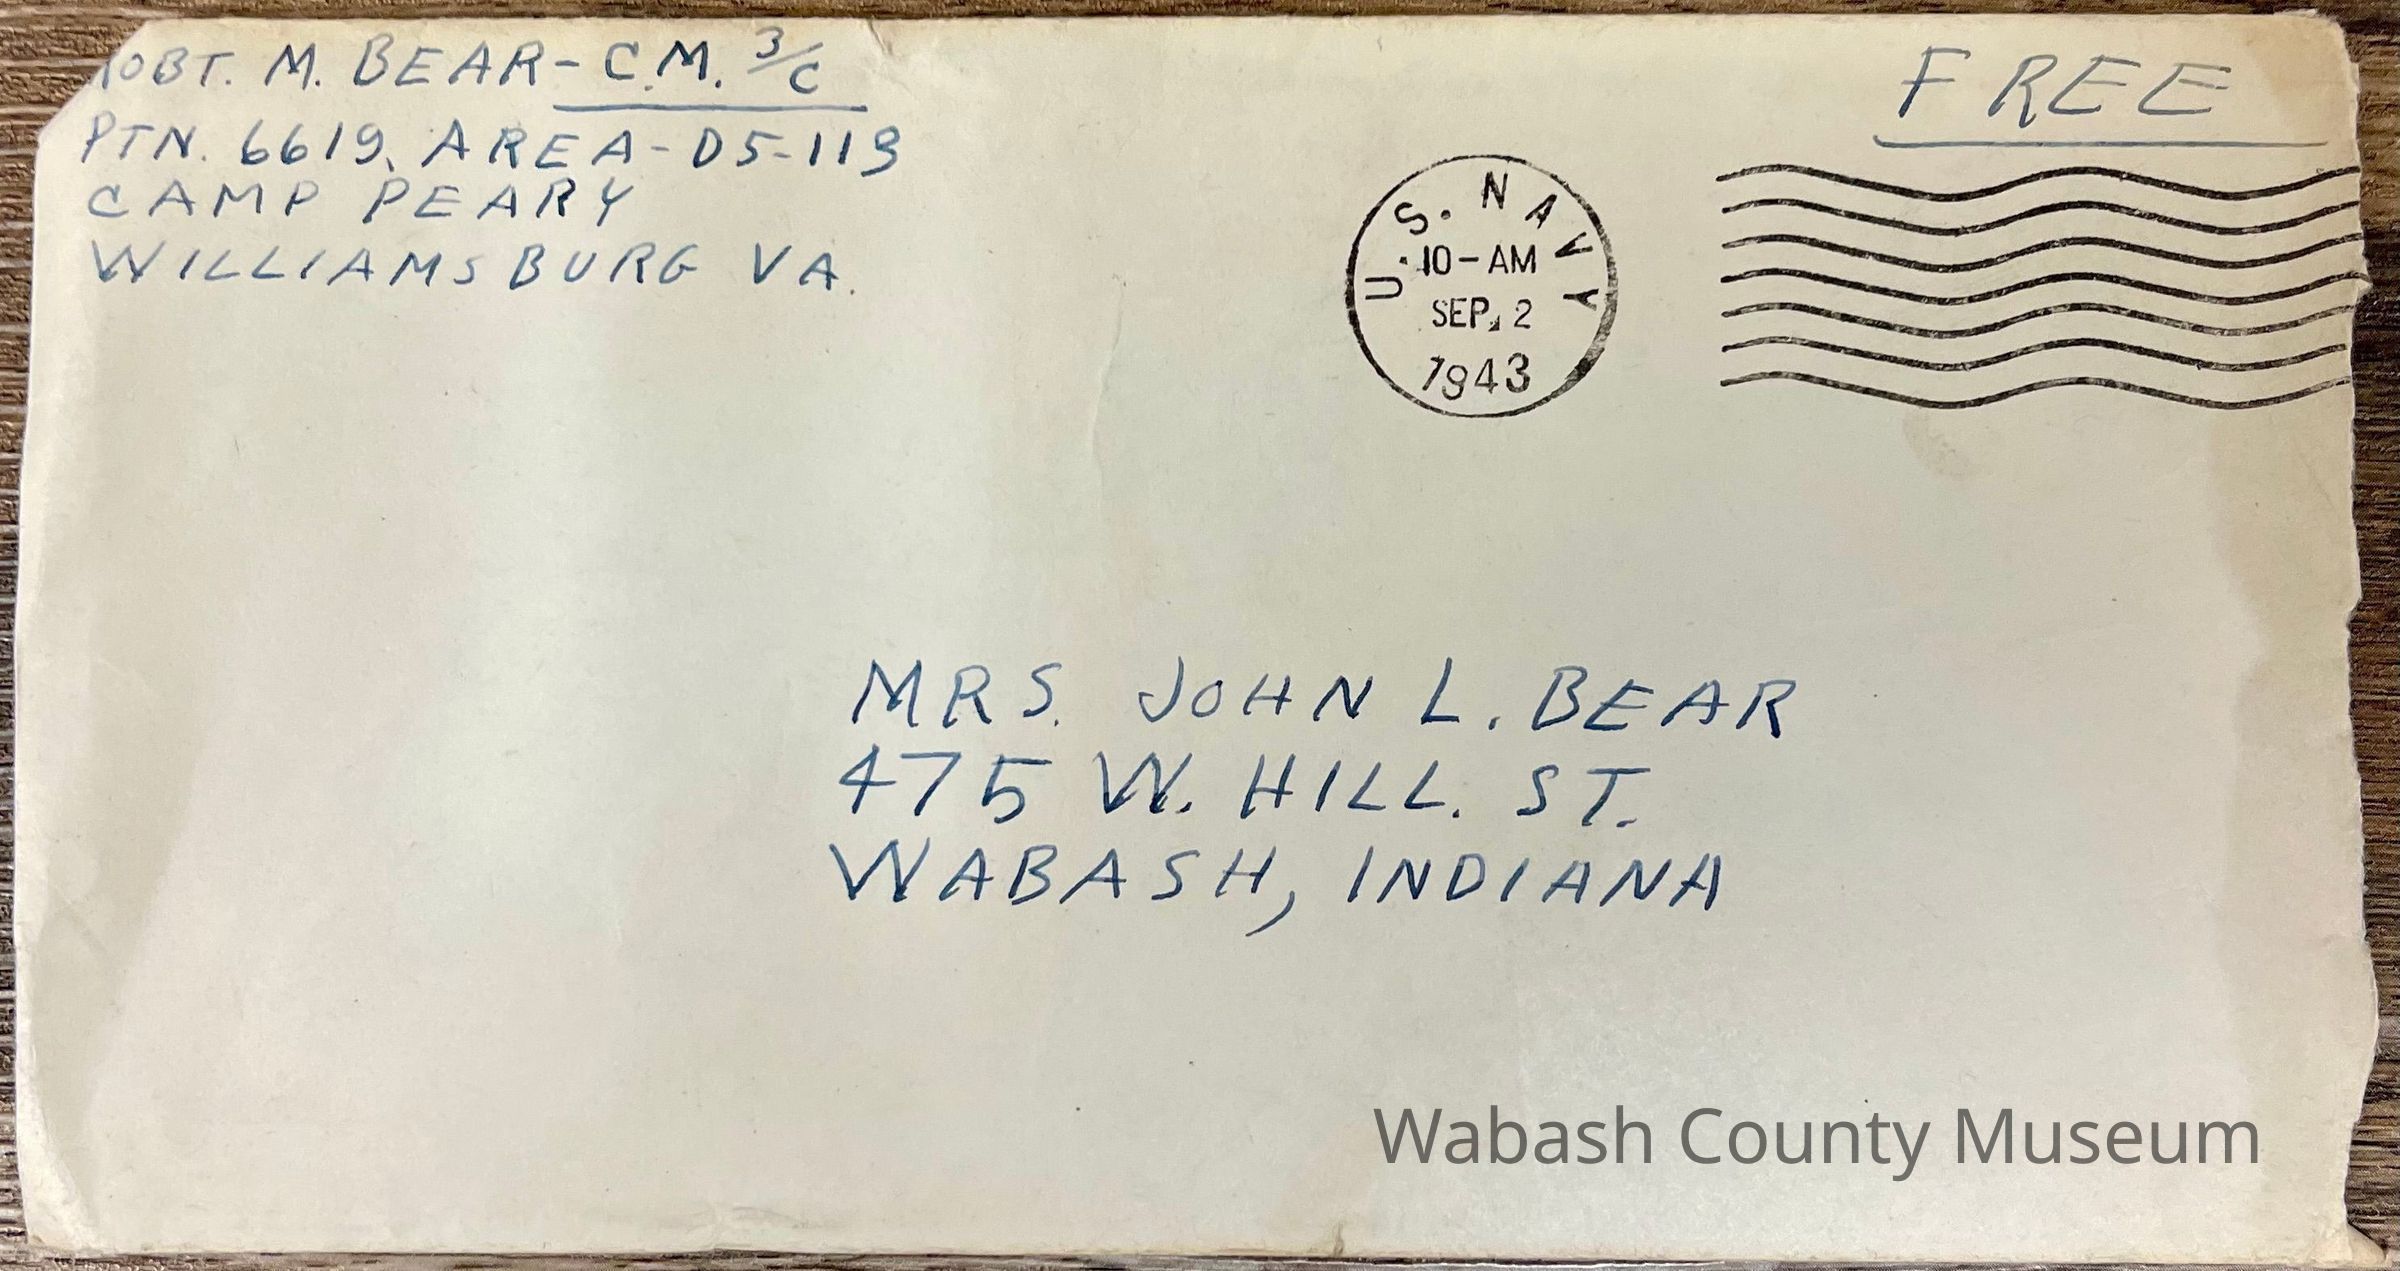 ROBT. M. BEAR - C.M. 3/C
PTN. 6619, AREA-D5-113
CAMP PEARY
WILLIAMSBURG VA.
FREE
U.S. NAVY
10-AM
SEP. 2
1943
MRS. JOHN L. BEAR
475 W. HILL. ST.
WABASH, INDIANA
Wabash County Museum